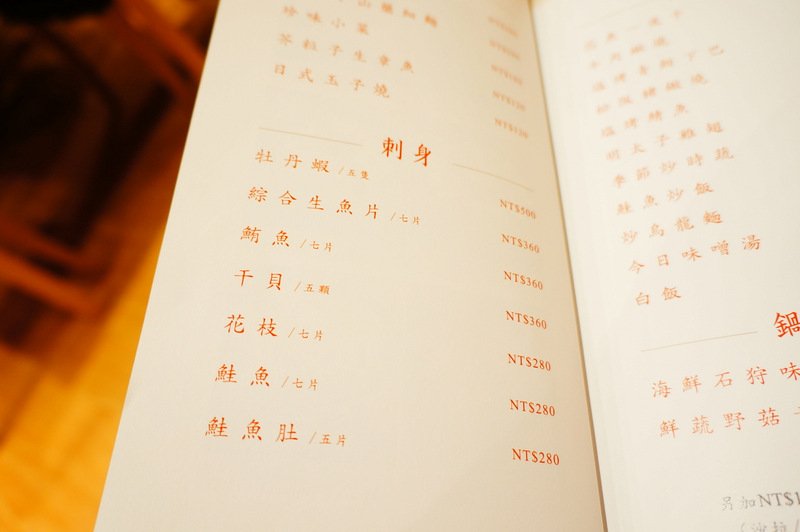 珍味小菜
芥籽子生章魚
日式玉子燒
NT$120
刺身
牡丹蝦/五隻 NT$500
綜合生魚片/七片 NT$360
鮪魚/七片 NT$360
干貝/五顆 NT$360
花枝/七片 NT$280
鮭魚/七片 NT$280
鮭魚肚/五片 NT$280
明太子雞翅
季節炒時蔬
鮭魚炒飯
炒烏龍麵
今日味噌湯
白飯
鍋
海鮮石狩味
鮮蔬野菇
另加NT$1
(沙拉